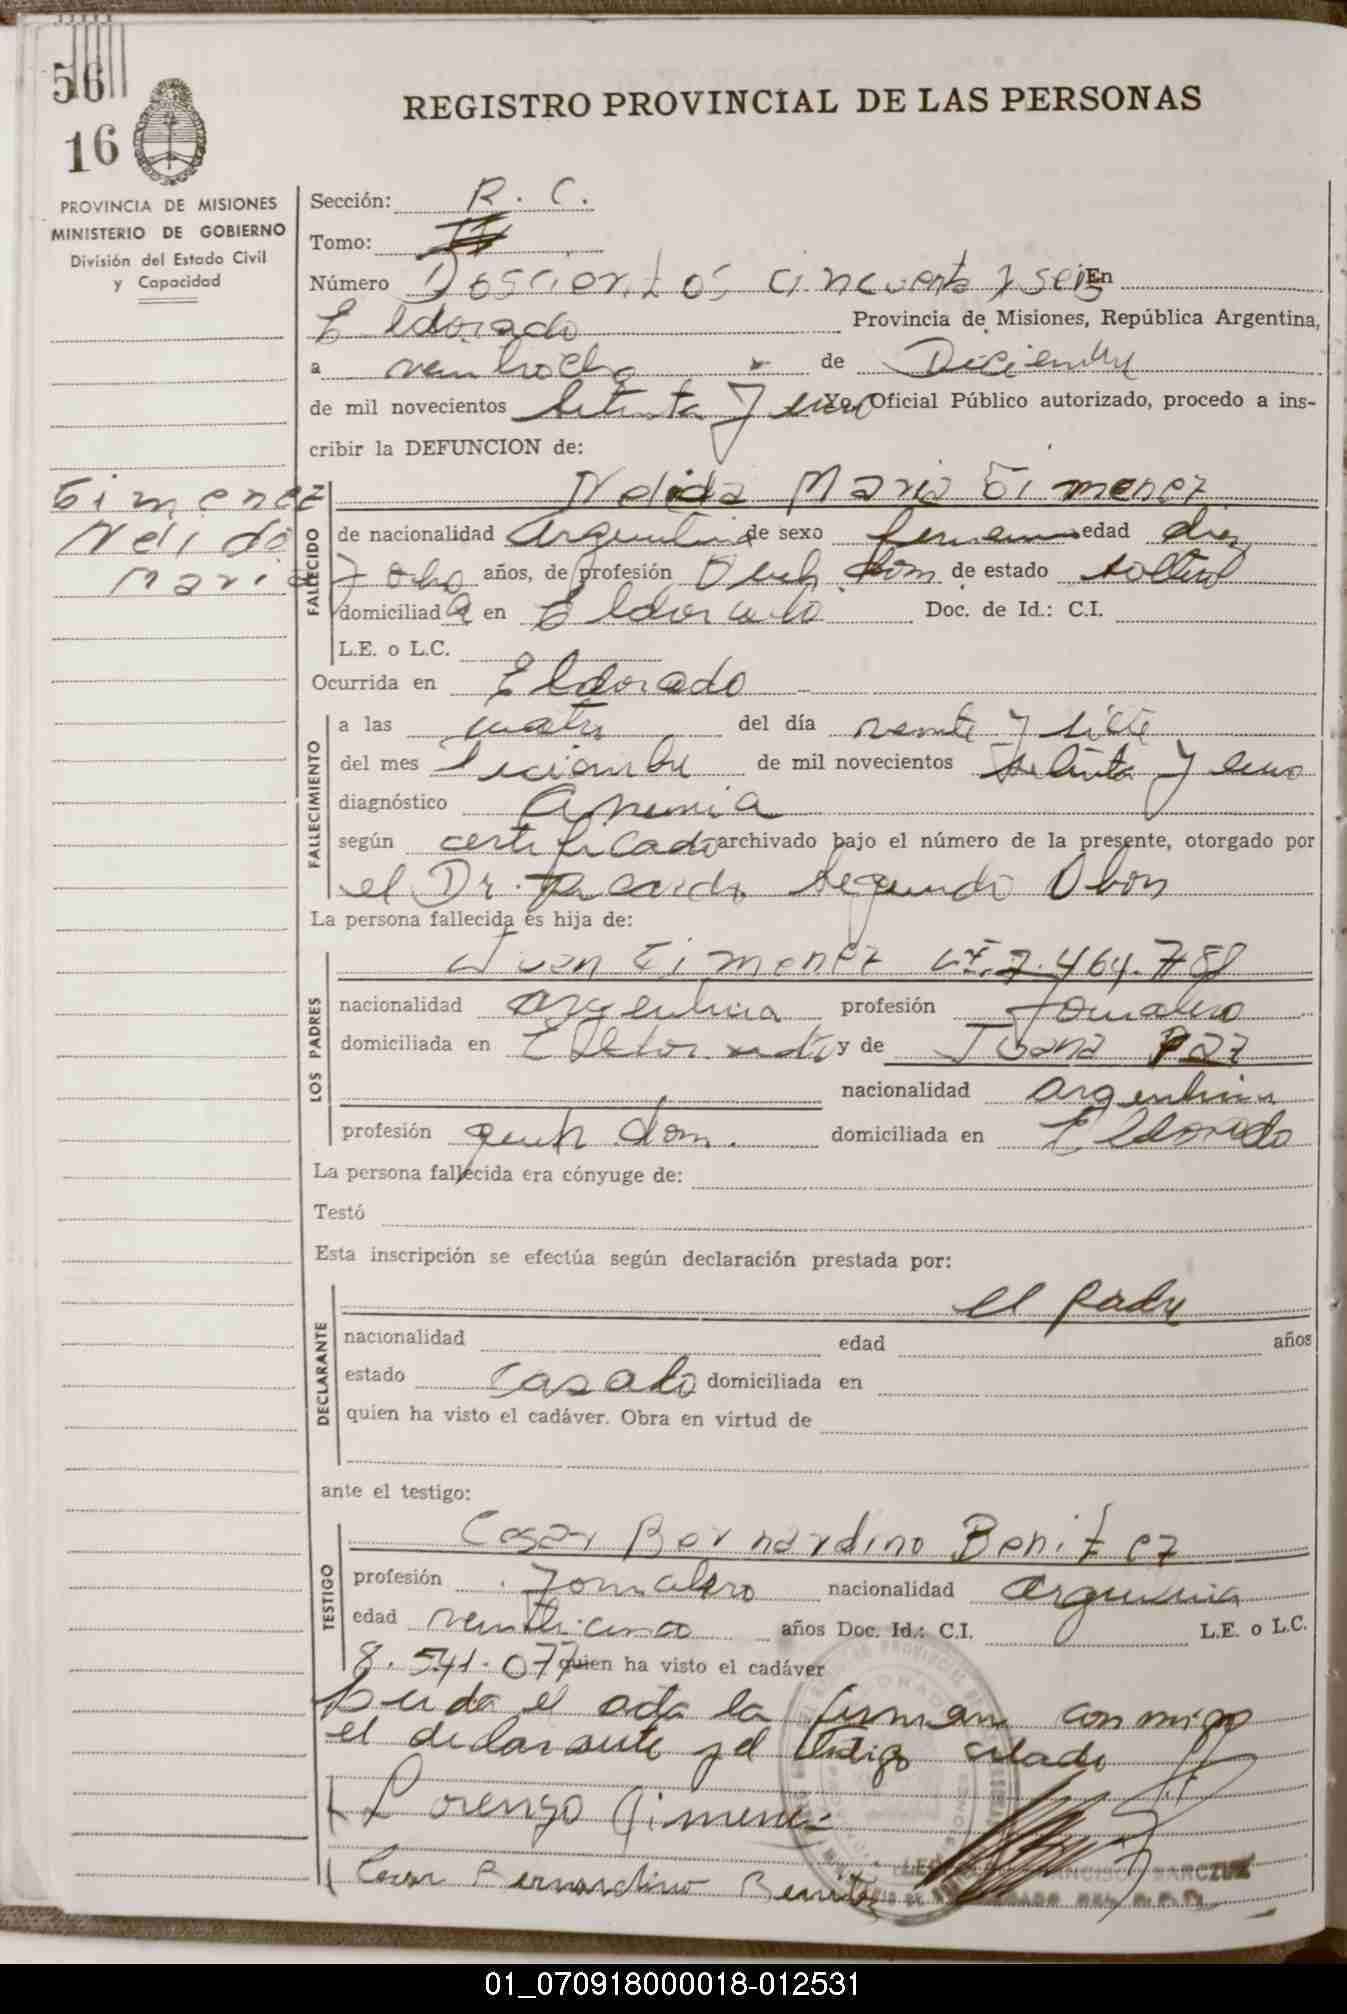 56
16
REGISTRO PROVINCIAL DE LAS PERSONAS
PROVINCIA DE MISIONES
MINISTERIO DE GOBIERNO
División del Estado Civil
y Capacidad
Sección: R. C.
Tomo: II
Número Doscientos cincuenta y seis En
Eldorado Provincia de Misiones, República Argentina,
a veintiocho de Diciembre
de mil novecientos setenta y uno Yo, Oficial Público autorizado, procedo a ins-
cribir la DEFUNCION de:
Gimenez
Nelida
Maria
FALLECIDO
Nelida Maria Gimenez
de nacionalidad argentina de sexo femenino edad diez
y ocho años, de profesión Queh. dom de estado soltera
domiciliada en Eldorado Doc. de Id.: C.I.
L.E. o L.C.
Ocurrida en Eldorado
FALLECIMIENTO
a las cuatro del día veinte y siete
del mes diciembre de mil novecientos setenta y uno
diagnóstico Anemia
según certificado archivado bajo el número de la presente, otorgado por
el Dr. Segundo Obon
La persona fallecida es hija de:
LOS PADRES
Juan Gimenez LE. 7.464.788
nacionalidad argentina profesión Jornalero
domiciliada en Eldorado y de Juana Paz
nacionalidad argentina
profesión queh. dom. domiciliada en Eldorado
La persona fallecida era cónyuge de:
Testó
Esta inscripción se efectúa según declaración prestada por:
DECLARANTE
el padre
nacionalidad edad años
estado Casado domiciliada en
quien ha visto el cadáver. Obra en virtud de
ante el testigo:
TESTIGO
Cesar Bernardino Benitez
profesión Jornalero nacionalidad argentina
edad veinticinco años Doc. Id.: C.I. L.E. o L.C.
8.541.077 quien ha visto el cadáver
Leida el acta la firman conmigo
el declarante y el testigo citado
Lorenzo Gimenez
Cesar Bernardino Benitez
FRANCISCO MARCZUK
01_070918000018-012531